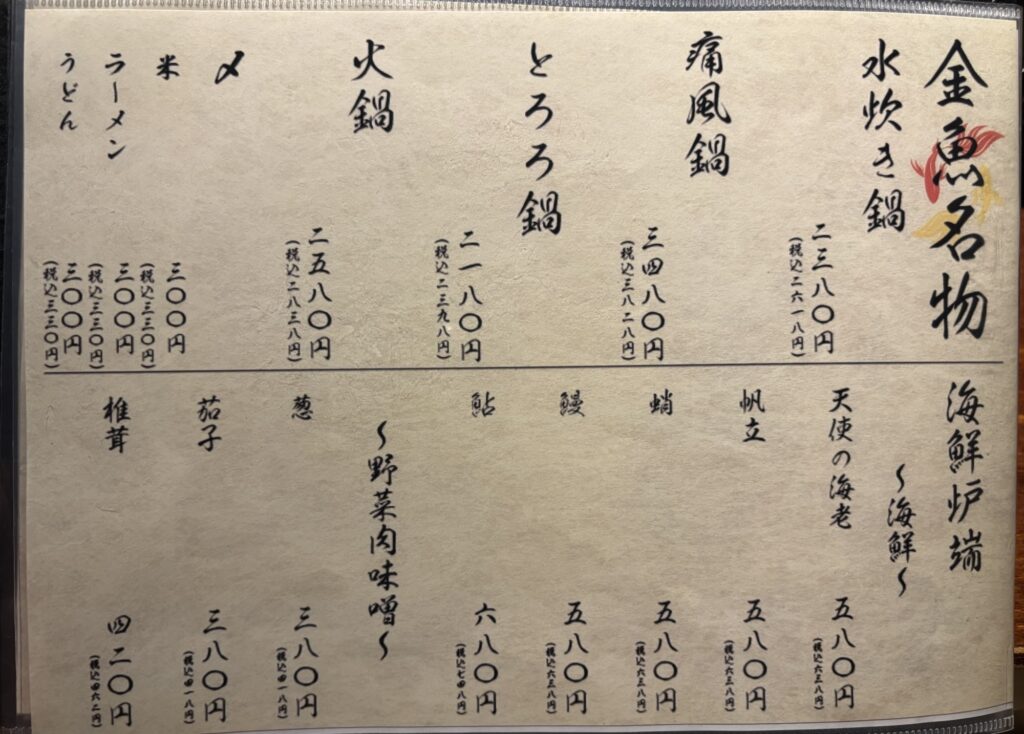 金魚名物
水炊き鍋
二三八〇円
(税込二六一八円)
痛風鍋
三四八〇円
(税込三八二八円)
とろろ鍋
二一八〇円
(税込二三九八円)
火鍋
二五八〇円
(税込二八三八円)
〆
米
三〇〇円
(税込三三〇円)
ラーメン
三〇〇円
(税込三三〇円)
うどん
三〇〇円
(税込三三〇円)
海鮮炉端
~海鮮~
天使の海老
五八〇円
(税込六三八円)
帆立
五八〇円
(税込六三八円)
蛸
五八〇円
(税込六三八円)
鰻
五八〇円
(税込六三八円)
鮎
六八〇円
(税込七四八円)
~野菜肉味噌~
葱
三八〇円
(税込四一八円)
茄子
三八〇円
(税込四一八円)
椎茸
四二〇円
(税込四六二円)